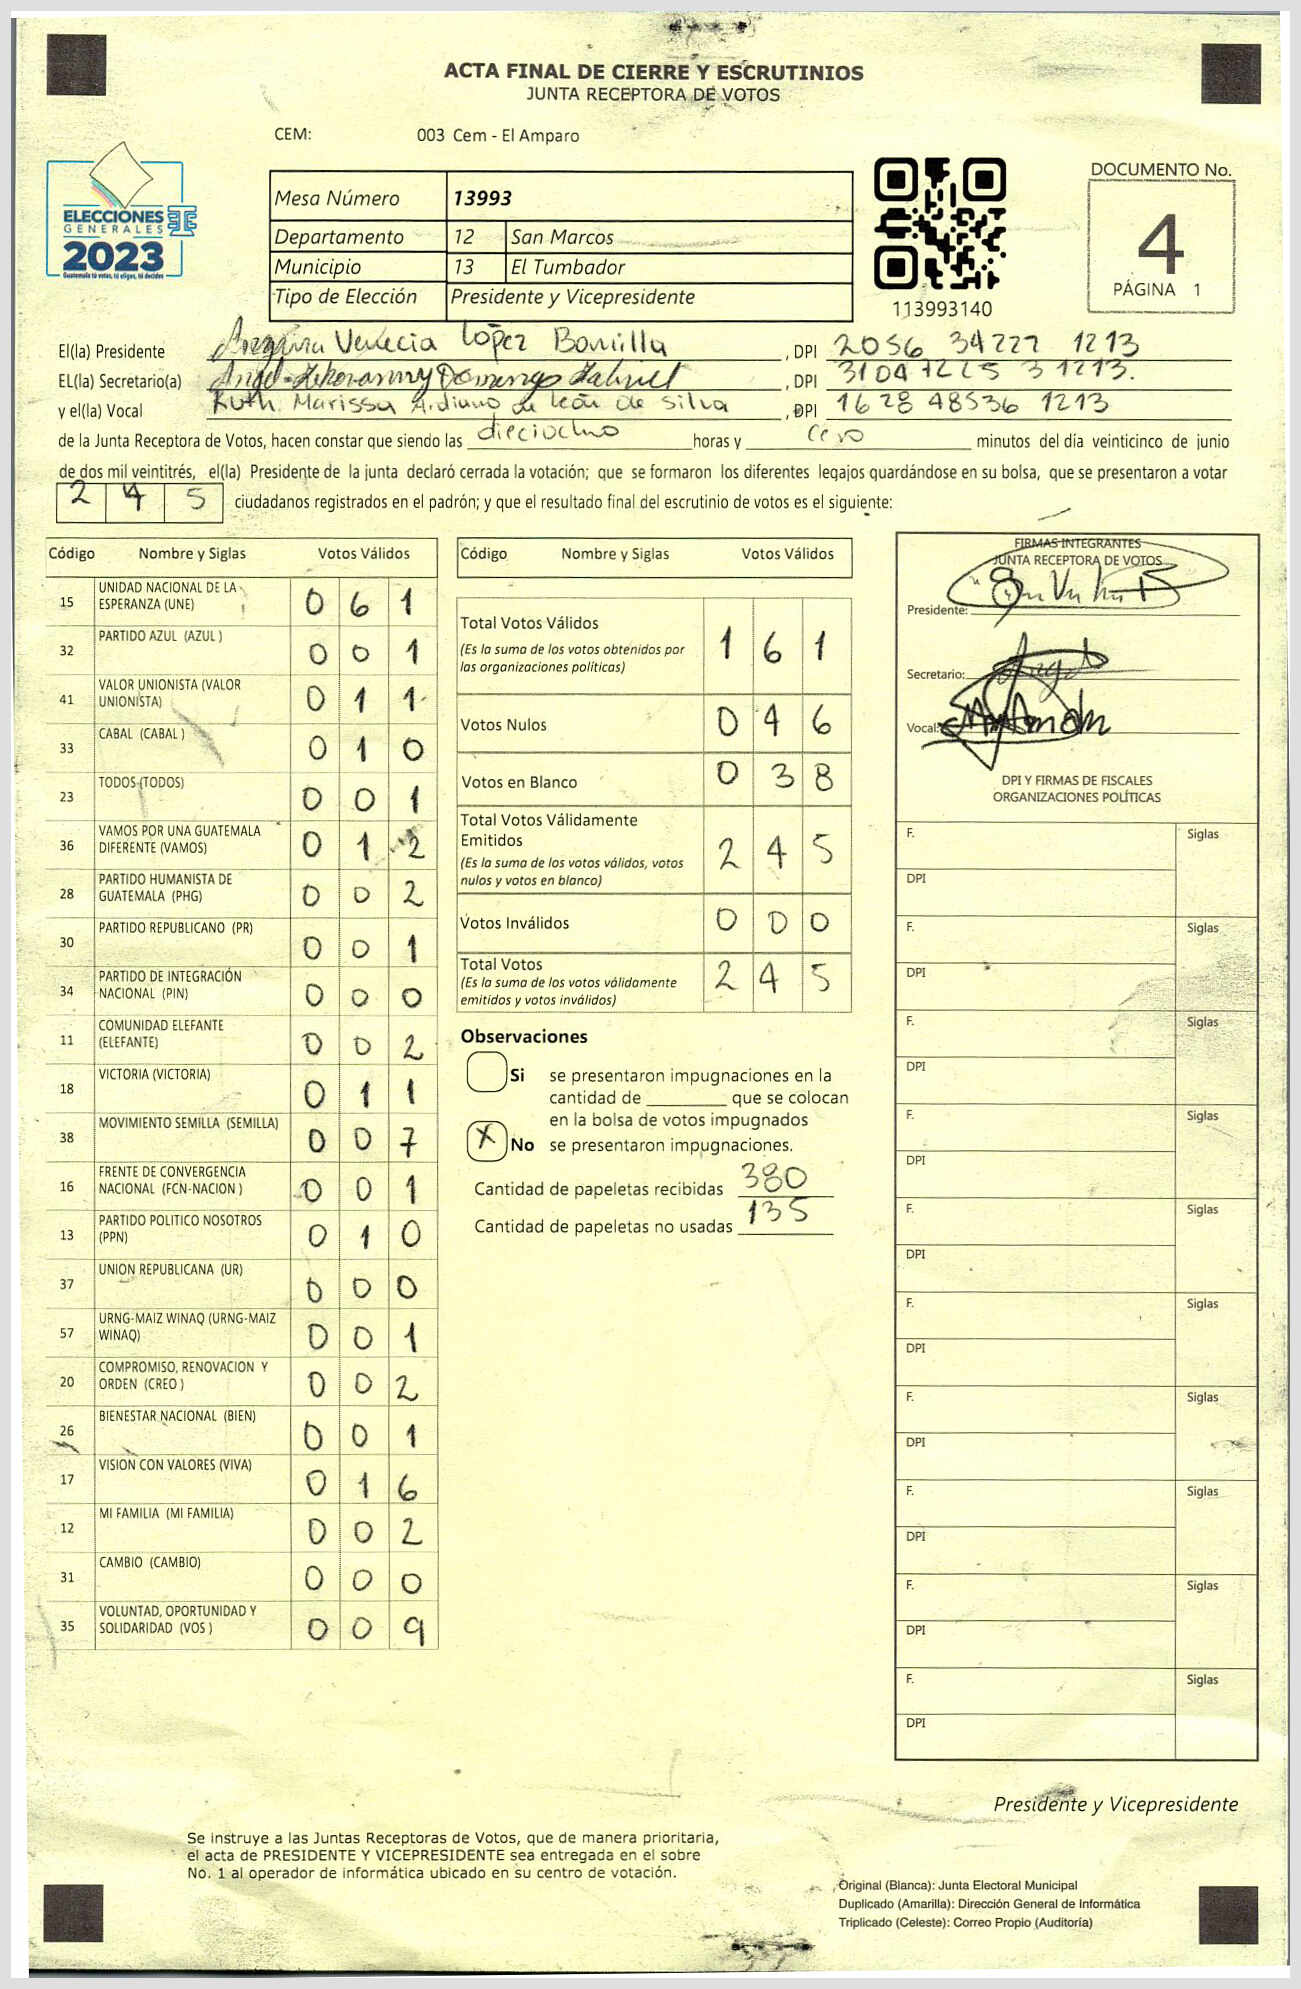 ACTA FINAL DE CIERRE Y ESCRUTINIOS
JUNTA RECEPTORA DE VOTOS
CEM: 003 Cem - El Amparo
ELECCIONES
GENERALES
2023
Guatemala tú votas, tú eliges, tú decides
Mesa Número 13993
Departamento 12 San Marcos
Municipio 13 El Tumbador
Tipo de Elección Presidente y Vicepresidente
113993140
DOCUMENTO No.
4
PÁGINA 1
El(la) Presidente Venecia López Bonilla , DPI 2056 34227 1213
EL(la) Secretario(a) Domingo , DPI 1213.
y el(la) Vocal Ruth Marissa de león de Silva , DPI 1628 48536 1213
de la Junta Receptora de Votos, hacen constar que siendo las dieciocho horas y cero minutos del día veinticinco de junio
de dos mil veintitrés, el(la) Presidente de la junta declaró cerrada la votación; que se formaron los diferentes legajos guardándose en su bolsa, que se presentaron a votar
2 4 5 ciudadanos registrados en el padrón; y que el resultado final del escrutinio de votos es el siguiente:
Código Nombre y Siglas Votos Válidos
15 UNIDAD NACIONAL DE LA ESPERANZA (UNE) 0 6 1
32 PARTIDO AZUL (AZUL ) 0 0 1
41 VALOR UNIONISTA (VALOR UNIONISTA) 0 1 1
33 CABAL (CABAL ) 0 1 0
23 TODOS (TODOS) 0 0 1
36 VAMOS POR UNA GUATEMALA DIFERENTE (VAMOS) 0 1 2
28 PARTIDO HUMANISTA DE GUATEMALA (PHG) 0 0 2
30 PARTIDO REPUBLICANO (PR) 0 0 1
34 PARTIDO DE INTEGRACIÓN NACIONAL (PIN) 0 0 0
11 COMUNIDAD ELEFANTE (ELEFANTE) 0 0 2
18 VICTORIA (VICTORIA) 0 1 1
38 MOVIMIENTO SEMILLA (SEMILLA) 0 0 7
16 FRENTE DE CONVERGENCIA NACIONAL (FCN-NACION ) 0 0 1
13 PARTIDO POLITICO NOSOTROS (PPN) 0 1 0
37 UNION REPUBLICANA (UR) 0 0 0
57 URNG-MAIZ WINAQ (URNG-MAIZ WINAQ) 0 0 1
20 COMPROMISO, RENOVACION Y ORDEN (CREO ) 0 0 2
26 BIENESTAR NACIONAL (BIEN) 0 0 1
17 VISION CON VALORES (VIVA) 0 1 6
12 MI FAMILIA (MI FAMILIA) 0 0 2
31 CAMBIO (CAMBIO) 0 0 0
35 VOLUNTAD, OPORTUNIDAD Y SOLIDARIDAD (VOS ) 0 0 9
Código Nombre y Siglas Votos Válidos
Total Votos Válidos 1 6 1
(Es la suma de los votos obtenidos por
las organizaciones políticas)
Votos Nulos 0 4 6
Votos en Blanco 0 3 8
Total Votos Válidamente
Emitidos 2 4 5
(Es la suma de los votos válidos, votos
nulos y votos en blanco)
Votos Inválidos 0 0 0
Total Votos 2 4 5
(Es la suma de los votos válidamente
emitidos y votos inválidos)
Observaciones
Si se presentaron impugnaciones en la
cantidad de ________ que se colocan
en la bolsa de votos impugnados
X No se presentaron impugnaciones.
Cantidad de papeletas recibidas 380
Cantidad de papeletas no usadas 135
FIRMAS INTEGRANTES
JUNTA RECEPTORA DE VOTOS
Presidente:
Secretario:
Vocal:
DPI Y FIRMAS DE FISCALES
ORGANIZACIONES POLÍTICAS
F. Siglas
DPI
F. Siglas
DPI
F. Siglas
DPI
F. Siglas
DPI
F. Siglas
DPI
F. Siglas
DPI
F. Siglas
DPI
F. Siglas
DPI
F. Siglas
DPI
F. Siglas
DPI
Presidente y Vicepresidente
Se instruye a las Juntas Receptoras de Votos, que de manera prioritaria,
el acta de PRESIDENTE Y VICEPRESIDENTE sea entregada en el sobre
No. 1 al operador de informática ubicado en su centro de votación.
Original (Blanca): Junta Electoral Municipal
Duplicado (Amarilla): Dirección General de Informática
Triplicado (Celeste): Correo Propio (Auditoría)